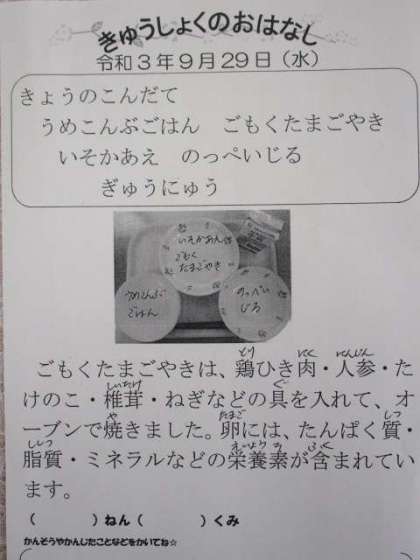 きゅうしょくのおはなし
令和３年９月２９日（水）
きょうのこんだて
うめこんぶごはん　ごもくたまごやき
いそかあえ　のっぺいじる
ぎゅうにゅう
いそかあえ
ごもく
たまごやき
うめこんぶ
ごはん
のっぺい
じる
とり　にく　にんじん
ごもくたまごやきは、鶏ひき肉・人参・た
しいたけ　ぐ
けのこ・椎茸・ねぎなどの具を入れて、オ
や　たまご　しつ
ーブンで焼きました。卵には、たんぱく質・
ししつ　えいようそ　ふく
脂質・ミネラルなどの栄養素が含まれてい
ます。
（　　　　）ねん（　　　　）くみ
かんそうやかんしたことなどをかいてね☆